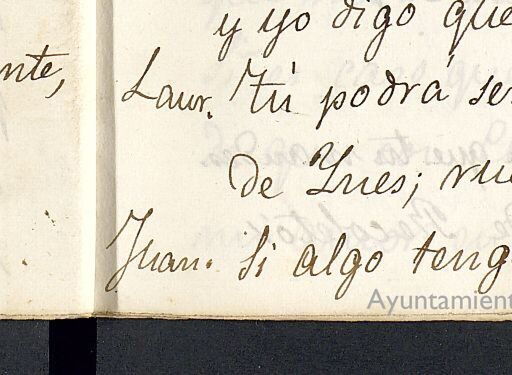 nte,
y yo digo que
Laur. Tú podrá se
de Ynes; vue
Juan. Si algo teng
Ayuntamient